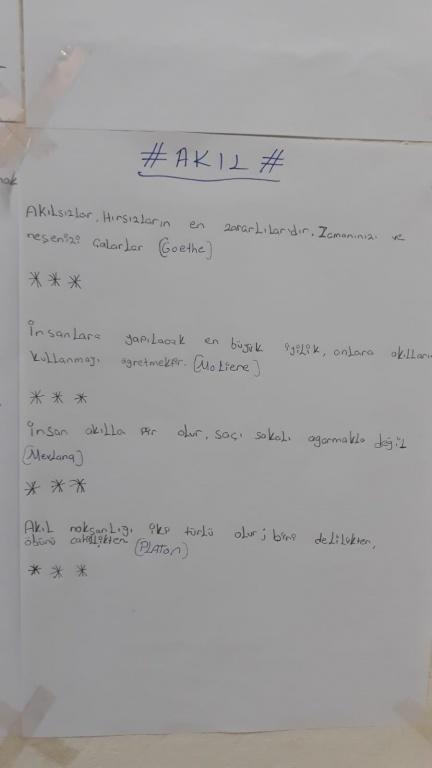 # AKIL #
Akılsızlar, Hırsızların en zararlılarıdır, Zamanınızı ve
neşenizi Çalarlar (Goethe)
***
İnsanlara yapılacak en büyük iyilik, onlara akılları
kullanmayı öğretmektir. (Moliere)
***
İnsan akılla Pir olur, saçı sakalı agarmakla değil
(Mevlana)
***
Akıl noksanlığı iki türlü olur; birini delilikten,
öbürü cahillikten (PLATON)
***